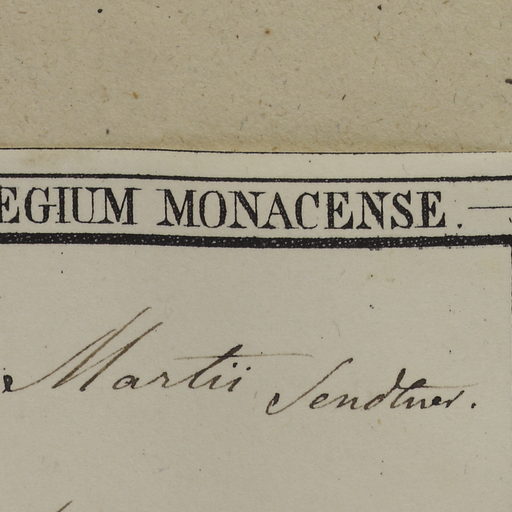 EGIUM MONACENSE.
e Martii Sendtner.